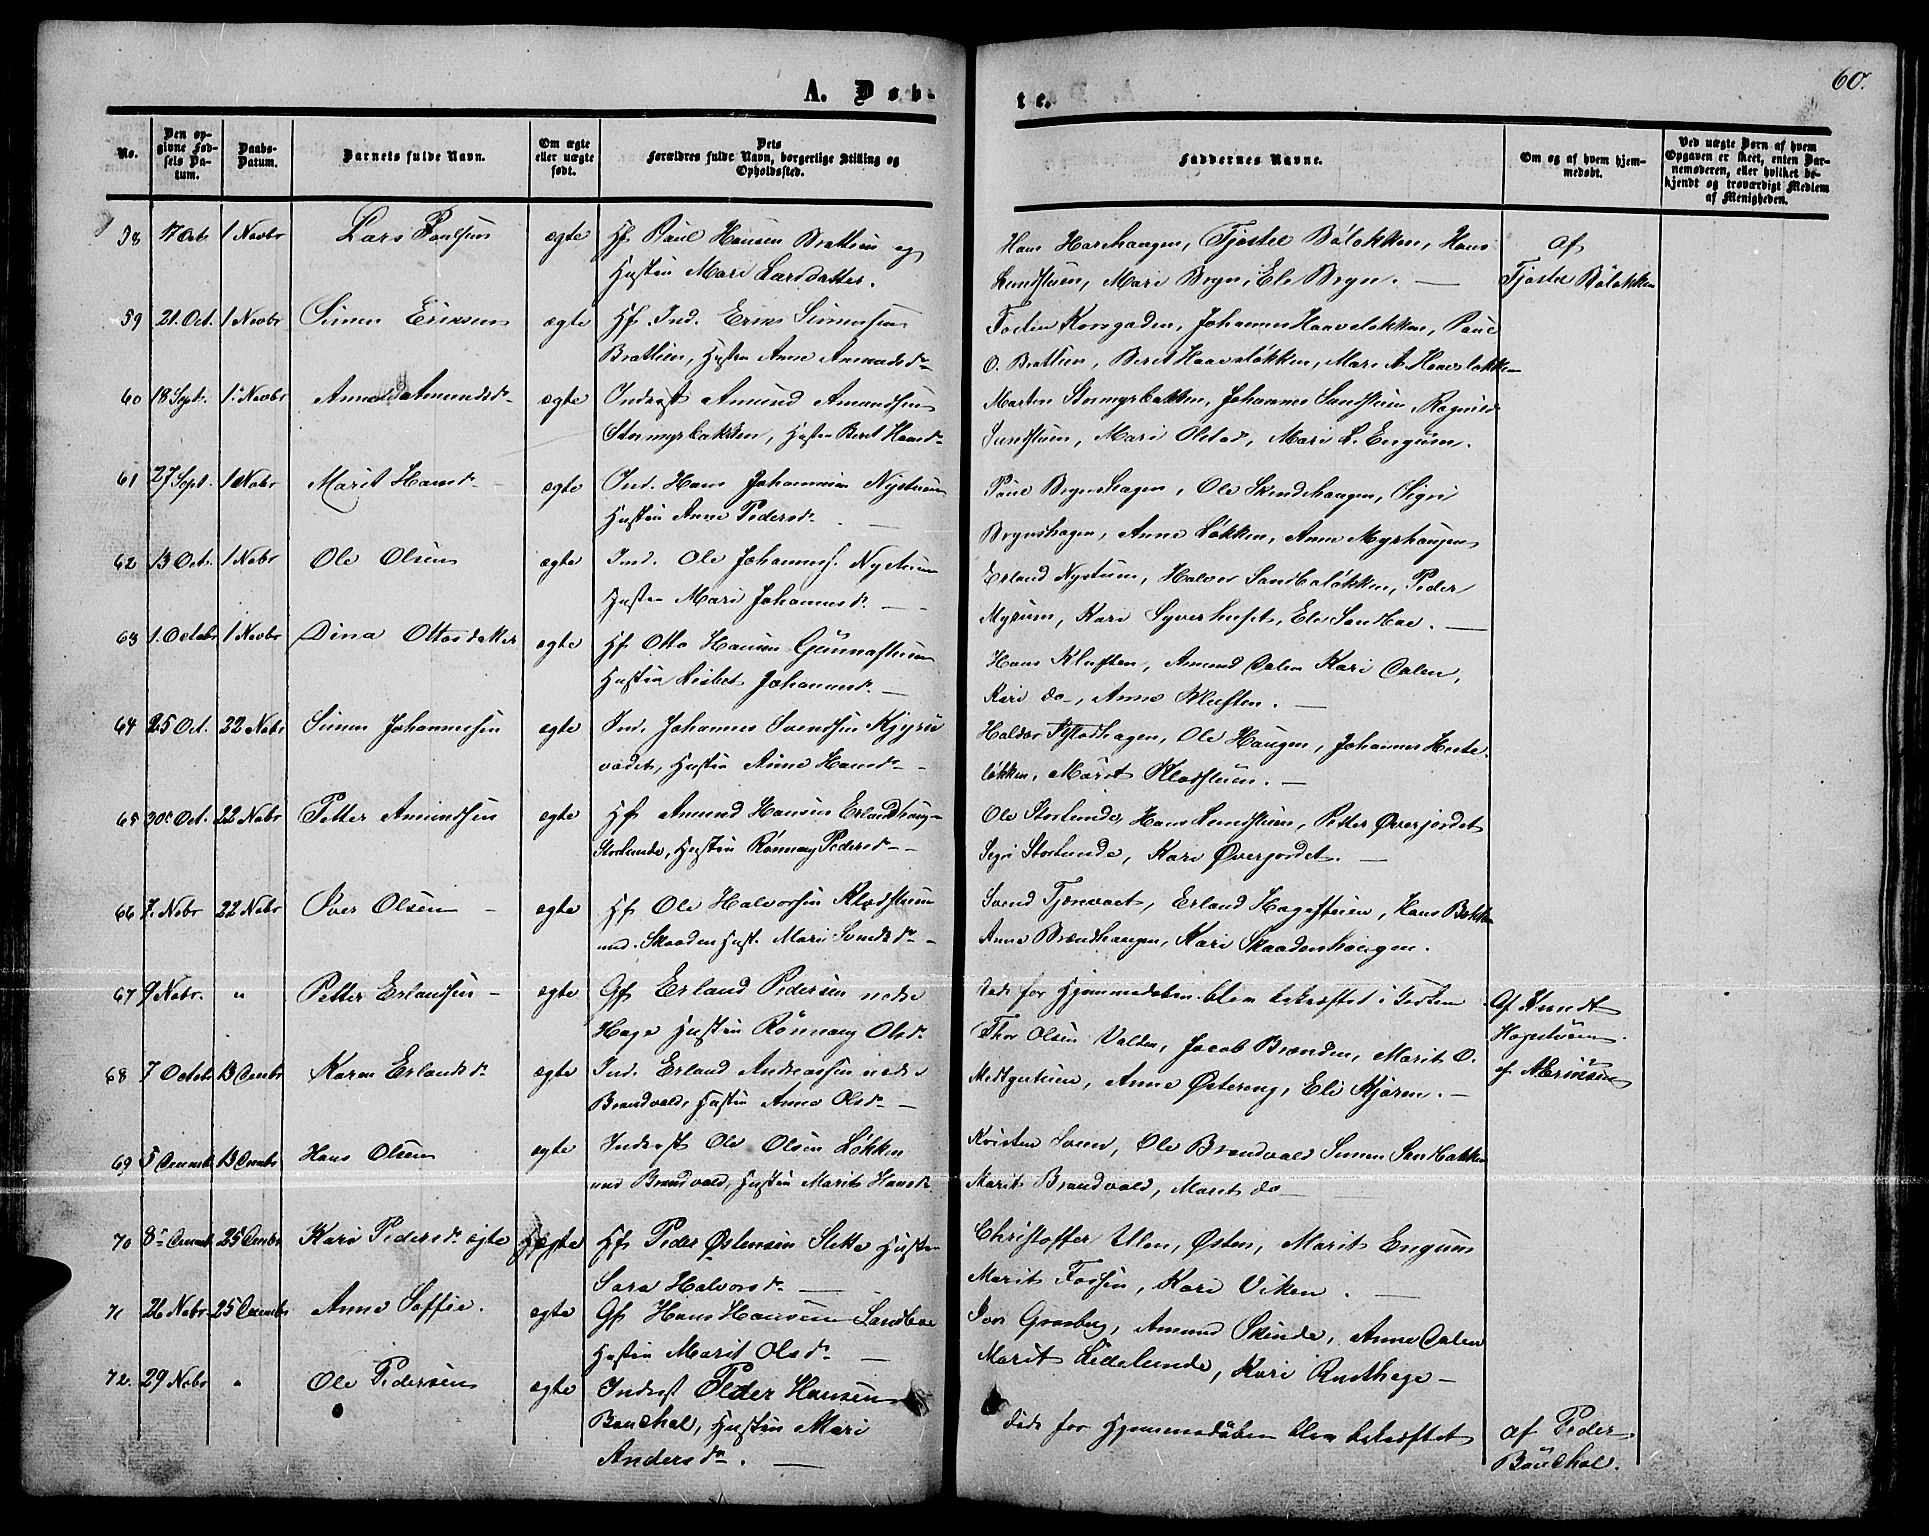 A. Døb-
te.
60.
No.
Den opgivne Fødsels Datum.
Daabs-Datum.
Barnets fulde Navn.
Om ægte eller uægte født.
Dets Forældres fulde Navn, borgerlige Stilling og Opholdssted.
Faddernes Navne.
Om og af hvem hjemmedøbt.
Ved uægte Børn af hvem Opgaven er skeet, enten Barnemoderen, eller hvilket bekjendt og troværdigt Medlem af Menigheden.
58 17 Oct 1 Novbr Lars Paulsen ægte Hf Paul Hansen Bratlien og
Hustru Mari Larsdatter.
Hans Harehaugen, Tjostel Böløkken, Hans
Lundstuen, Mari Bryn, Eli Bryn.
af
Tjostel Böløkken
59 21. Oct. 1 Novbr Simen Eriksen ægte Hf. Ind. Erik Simensen
Brattlien, Hustru Anne Amundsdr
Johannes Haaveløkken, Paul
O. Brattlien, Berit Haaveløkken, Mari A. Haaveløkken
60 18 Sept. 1. Novbr Anne Amundsdr ægte Inderst Amund Amundsen
Stormyrbakken, Hustru Beret Hansdr
Morten Stormyrbakken, Johannes Sandstuen, Ragnild
Sundstuen, Mari Olstad, Mari L. Engum.
61 27 Sept. 1 Nobr Marit Hansdr ægte Ind. Hans Johannesen Nystuen
Hustru Anne Pedersdr.
Paul Brynshagen, Ole Skindehaugen, Sigri
Brynshagen, Anne Løkken, Anne Myrhaugen
62 13 Oct. 1 Nobr Ole Olsen ægte Ind. Ole Johannes. Nystuen
Hustru Mari Johannesdr.
Erland Nystuen, Halvor Sandboløkken, Peder
Myrum, Kari Syverhuset, Eli Sandboe.
63 1. Octobr 1 Novbr Dina Ottosdatter ægte Hf Otto Hansen Gunnastuen
Hustru Lisbet Johannesdr.
Hans Kluften, Amund Dalen Kari Dalen,
Kari do, Anne Kluften.
64 25 Oct. 22 Nobr Simen Johannesen ægte Ind. Johannes Svendsen Kjyru
vadet, Hustru Anne Hansdr
Haldor Klodhagen, Ole Haugen, Johannes Heste-
løkken, Marit Klodstuen.
65 30 Oct. 22 Nobr Petter Amundsen ægte Hf Amund Hansen Erlandhaug
Storlunde, Hustru Rönnaug Pedersdr
Ole Storlunde, Hans Lundstuen, Petter Øverjordet
Sigri Storlunde, Kari Øverjordet.
66 7. Nobr 22 Nobr Iver Olsen ægte Hf Ole Halvorsen Klodstuen
und. Skaaden Hust. Mari Svendsdr
Svend Tjernvaet, Erland Hagestuen, Hans Bakken
Anne Brændhaugen, Kari Skaadenhaugen.
67 9 Nobr. " Petter Erlandsen ægte Gf Erland Pedersen nedre
Hage Hustru Rönnaug Olsdr
Døde før Hjemmedaaben blev bekræftet i Kirken
Af Knudt
Hagestuen.
68 7 Octob 13 Decmbr Karen Erlandsdr ægte Ind. Erland Andreassen nedre
Brandvold, Hustru Anne Olsdr
Thor Olsen Valden, Jacob Brænden, Marit O.
Midtgaistuen, Anne Østereng, Eli Kjörem.
af
69 5 Decmbr 13 Decmbr Hans Olsen ægte Inderst Ole Olsen Løkken
und Brandvold, Hustru Marit Hansdr
Kristen Sveen, Ole Brandvold Simen Sandbakken
Marit Brandvold, Marit do
70 8 Decmbr 25 Decmbr Kari Pedersdr ægte ægte Hf Peder Østensen Slette Hustru
Sara Halvorsdr.
Christoffer Ulen, Østen, Marit Engum
Marit Fossen, Kari Viken.
71 26 Nobr 25 Decmbr Anne Soffie. ægte Gf Hans Hansen Sandboe
Hustru Marit Olsdr
Iver Graaberg, Amund Skinde, Anne Dalen
Marit Lidelunde, Kari Rusthage
72. 29 Nobr " Ole Pedersen ægte Inderst Peder Hansen
Bouchol, Hustru Mari
Andersdr.
döde før Hjemmedåben blev bekræftet
af Peder
Bouchol.